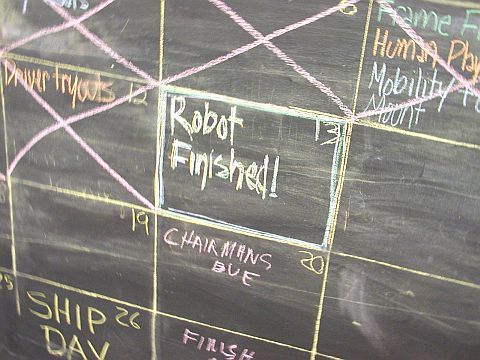 6
Frame
Human
Mobility
Mount
Driver tryouts 12
Robot 13
Finished!
19
CHAIRMANS
DUE 20
SHIP 26
DAY
FINISH